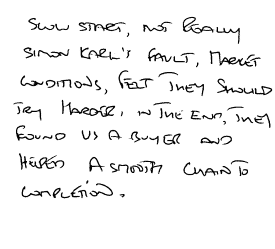 SLOW START, NOT REALLY
SIMON KARL'S FAULT, MARKET
CONDITIONS, FELT THEY SHOULD
TRY HARDER, IN THE END, THEY
FOUND US A BUYER AND
HELPED A SMOOTH CHAIN TO
COMPLETION.